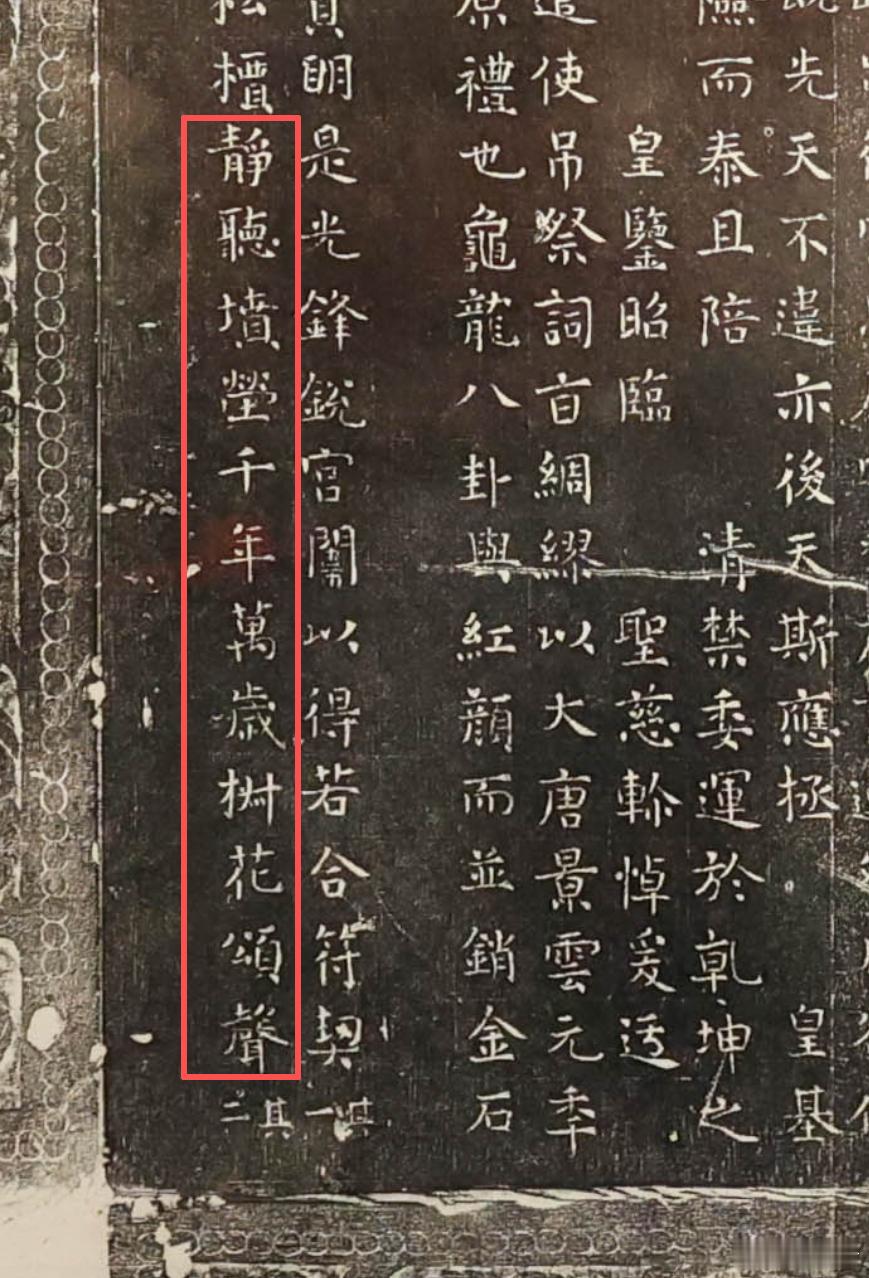 先天不違亦後天斯應拯 皇基
而泰且陪 清禁委運於乹坤之
皇鑒昭臨 聖慈軫悼爰
遣使吊祭詞旨綢繆以大唐景雲元季
原禮也龜龍八卦與紅顔而並銷金石
貞明是光鋒銳宫闈以得若合符契其一
松檟靜聽墳塋千年萬歲椒花頌聲其二